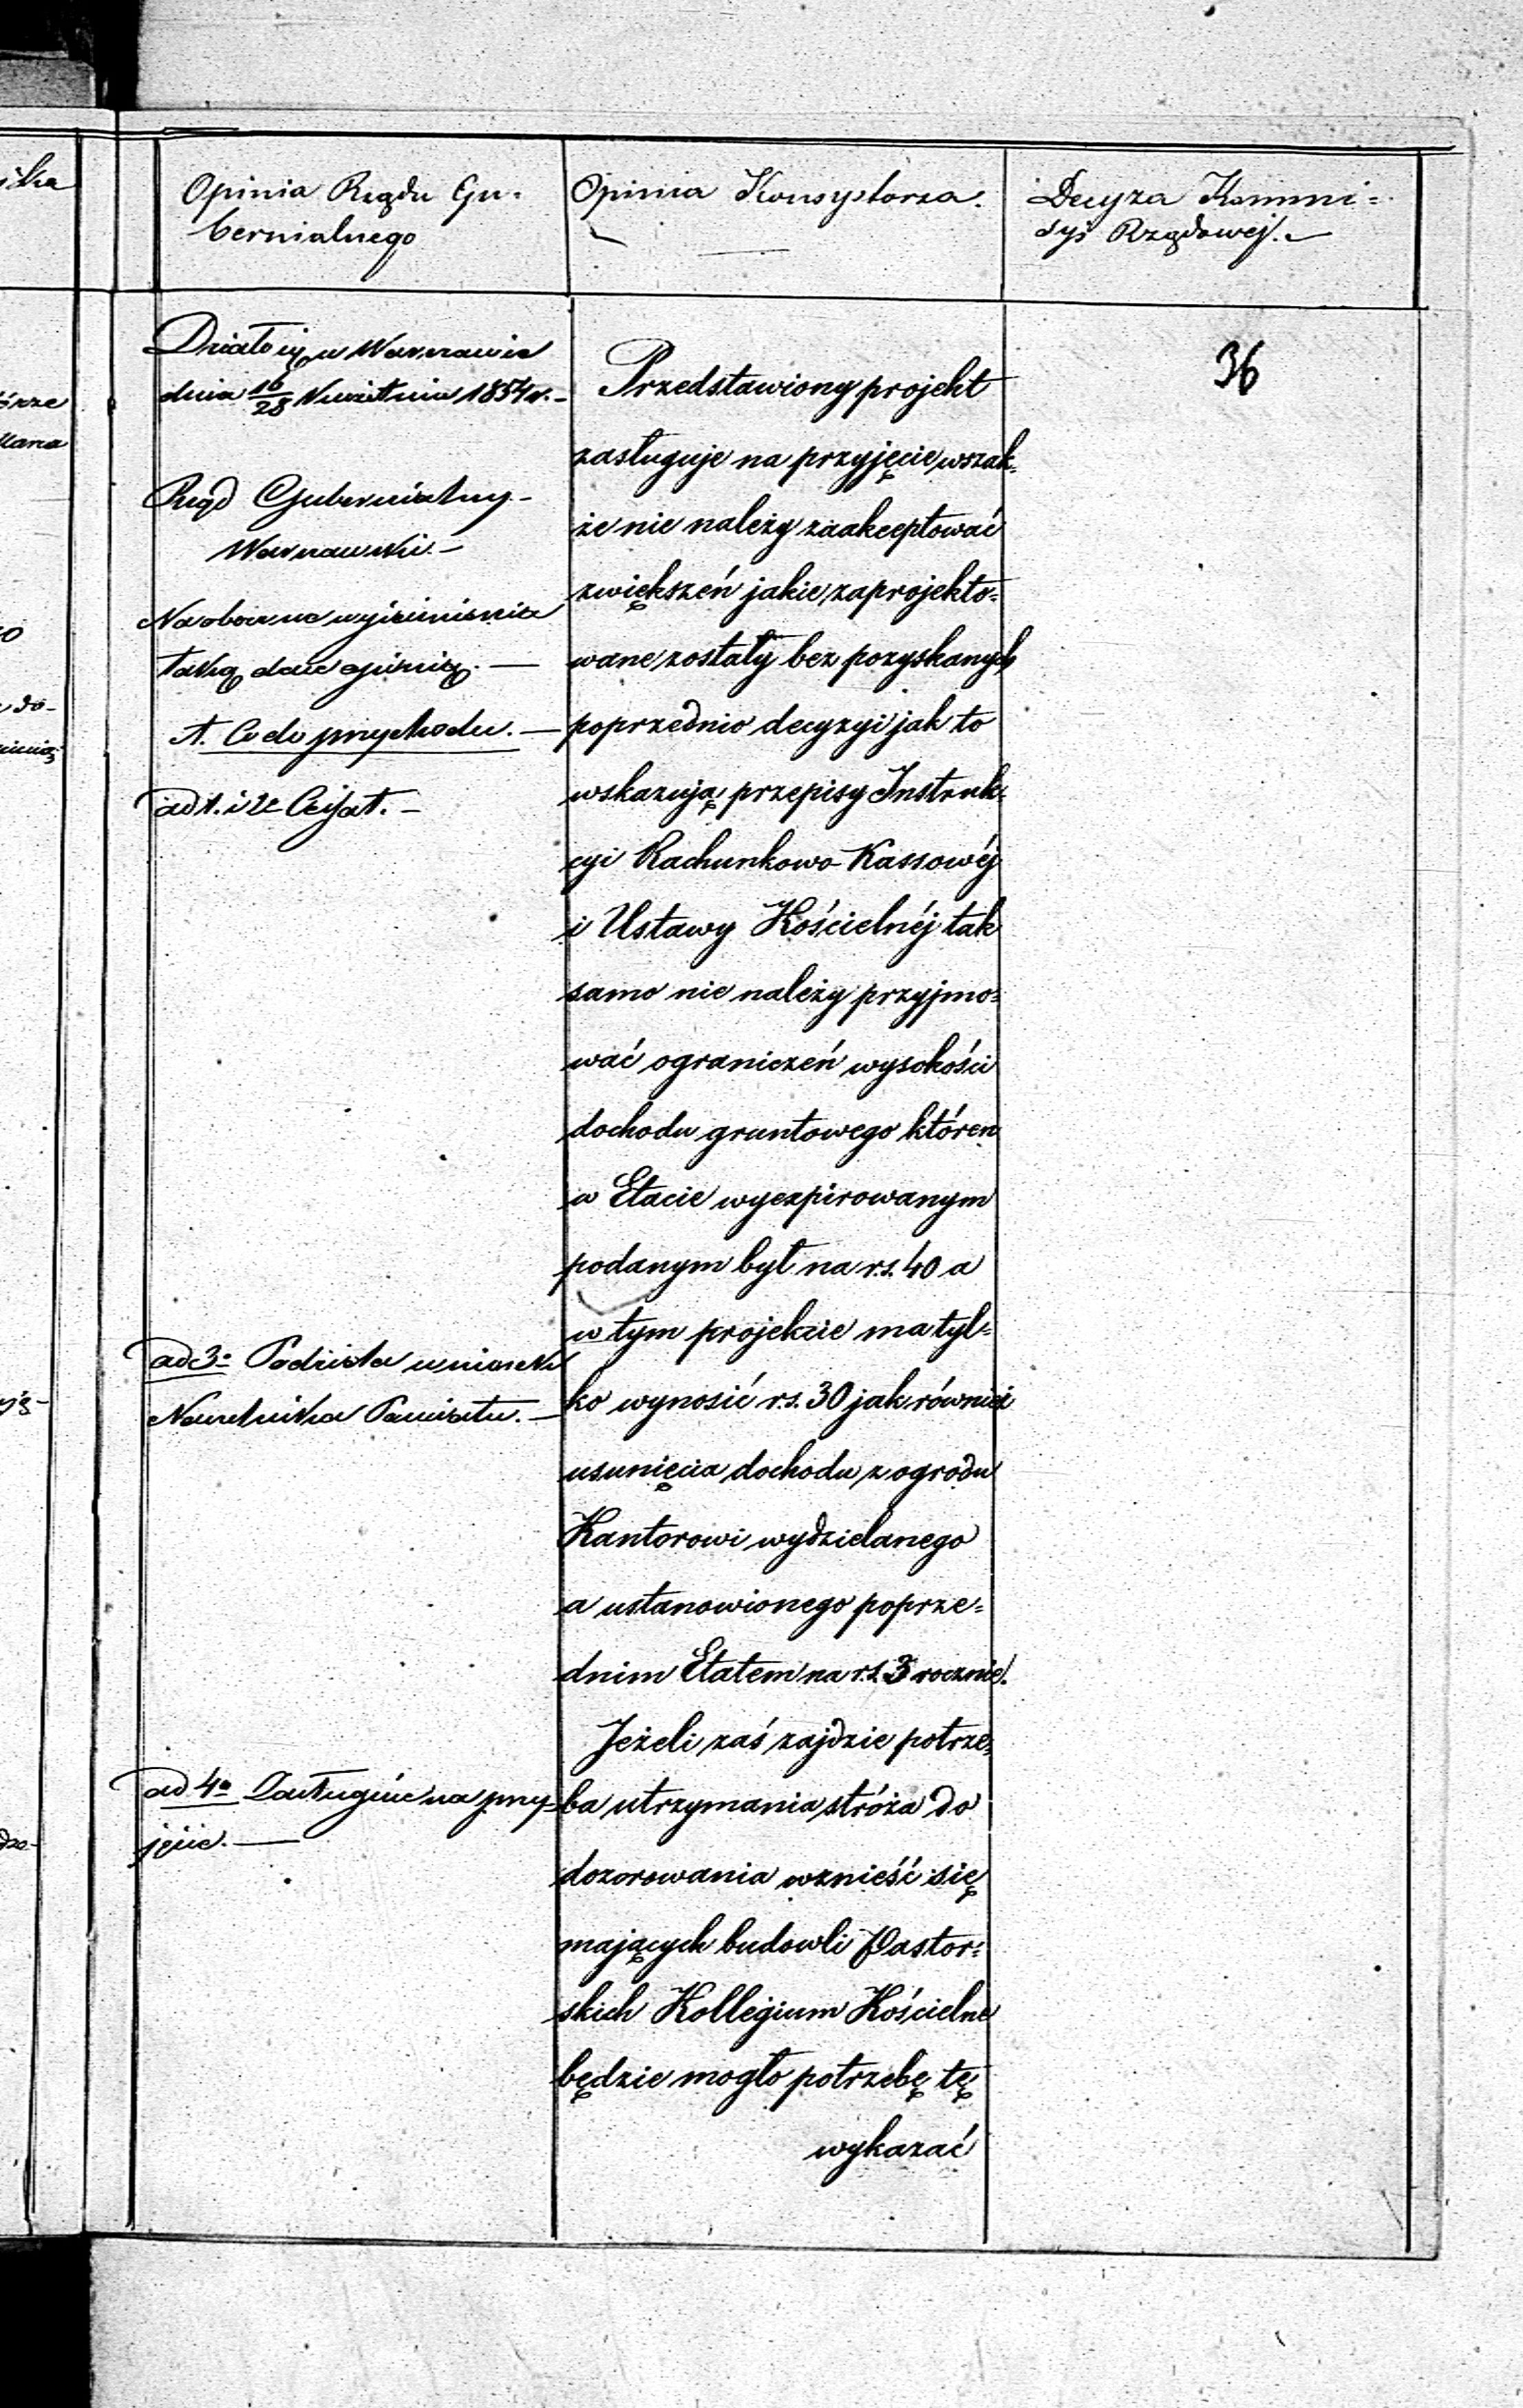 Opinia Rządu Gu-
bernialnego
Działo się w Warszawie
dnia 16/28 Kwietnia 1854 r. -
Rząd Gubernialny -
Warszawski. -
Na obocznie wyjaśnienia
taką daie opinię. —
A. Co do przychodu. —
ad 1. i 2
ad 3o Podziela wniosek
Naczelnika Powiatu. —
ad 4o Zasługuie na przy-
jęcie. —
Opinia Konsystorza.
Przedstawiony projekt
zasługuje na przyjęcie wszak-
że nie należy zaakceptować
zwiększeń jakie zaprojekto=
wane zostały bez pozyskanych
poprzednio decyzyi jak to
wskazują przepisy Instruk-
cyi Rachunkowo-Kassowéj
i Ustawy Kościelnéj tak
samo nie należy przyjmo=
wać ograniczeń wysokości
dochodu gruntowego któren
w Etacie wyexpirowanym
podanym był na r.s. 40 a
w tym projekcie ma tyl=
ko wynosić r.s. 30 jak również
usunięcia dochodu z ogrodu
Kantorowi wydzielanego
a ustanowionego poprze=
dnim Etatem na r.s. 3 rocznie.
Jeżeli zaś zajdzie potrze=
ba utrzymania stróża do
dozorowania wznieść się
mających budowli Pastor=
skich Kollegium Kościelne
będzie mogło potrzebę tę
wykazać
Decyza Kommi=
syi Rządowej. -
36